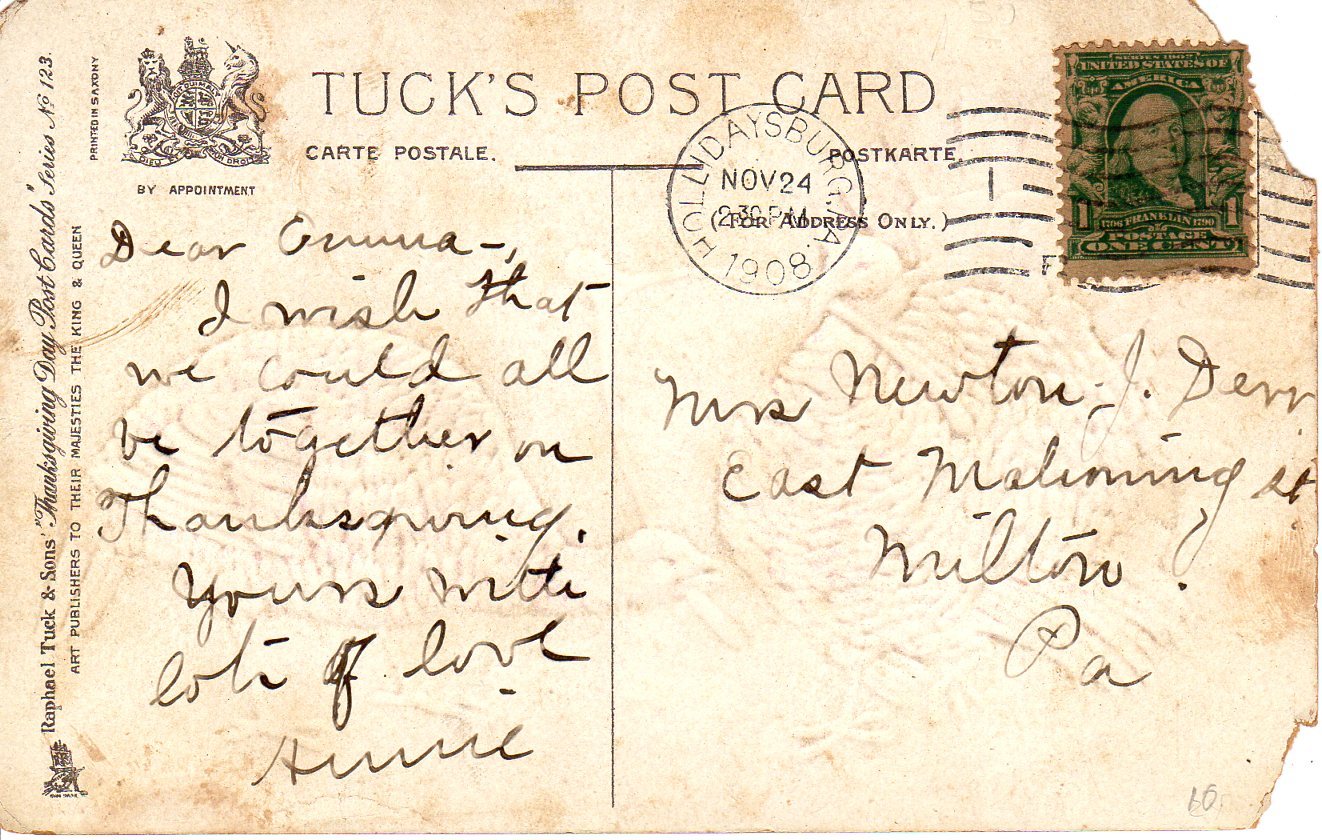 TUCK'S POST CARD
CARTE POSTALE.
POSTKARTE.
(FOR ADDRESS ONLY.)
BY APPOINTMENT
PRINTED IN SAXONY
Raphael Tuck & Sons' "Thanksgiving Day Post Cards" Series No 123.
ART PUBLISHERS TO THEIR MAJESTIES THE KING & QUEEN
HOLLIDAYSBURG. PA.
NOV 24
2 30 P.M.
1908
SERIES 1902
UNITED STATES OF
AMERICA
1706 FRANKLIN 1790
1 POSTAGE 1
ONE CENT
Dear Emma -,
I wish that
we could all
be together on
Thanksgiving.
Yours with
lots of love
Annie
Mrs Newton J. Derr
East Mahoning st
Milton.
Pa